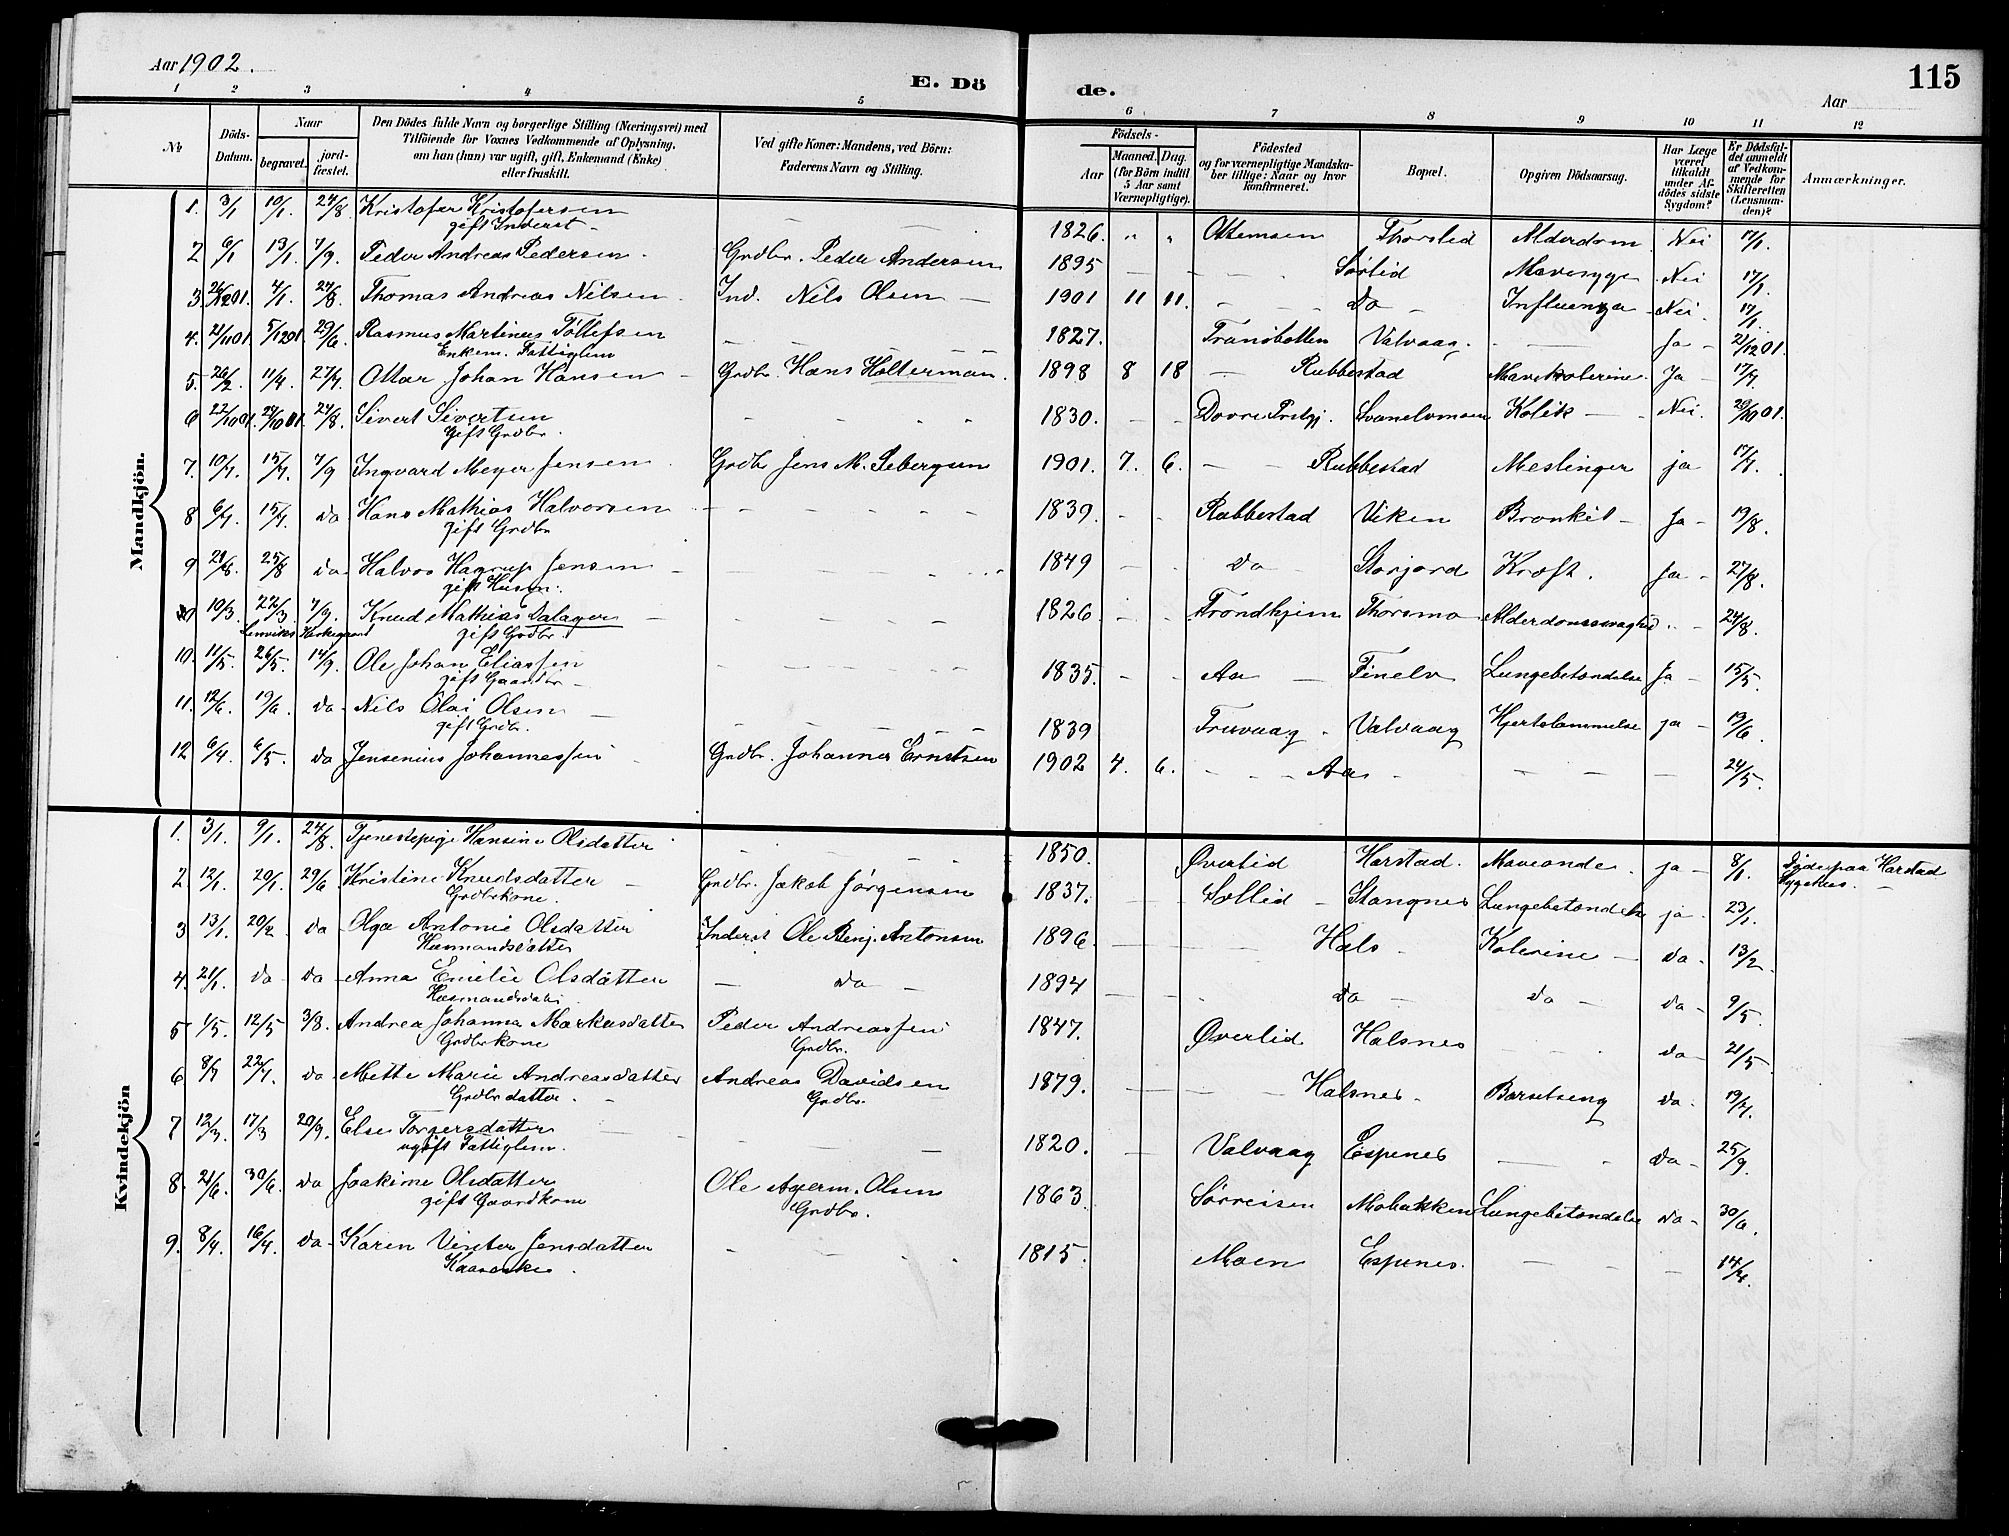 Aar 1902.
E. Dö de.
Aar
115
1 2 3 4 5 6 7 8 9 10 11 12
No
Döds-Datum.
Naar
begravet.
jord-fæstet.
Den Dödes fulde Navn og borgerlige Stilling (Næringsvei) med
Tilföiende for Voxnes Vedkommende af Oplysning,
om han (hun) var ugift, gift, Enkemand (Enke)
eller fraskilt.
Ved gifte Koner: Mandens, ved Börn:
Faderens Navn og Stilling.
Födsels-
Aar
Maaned. Dag.
(for Börn indtil
5 Aar samt
Værnepligtige).
Födested
og for værnepligtige Mandska-
ber tillige: Naar og hvor
konfirmeret.
Bopæl.
Opgiven Dödsaarsag.
Har Læge
været
tilkaldt
under Af-
dödes sidste
Sygdom?
Er Dödsfal-
det anmeldt
af Vedkom-
mende for
Skifteretten
(Lensman-
den)?
Anmærkninger.
Mandkjön.
1. 3/1 10/1. 24/8 Kristofer Kristofersen — 1826. " " Ottemsen Thorslid Alderdom Nei 17/1.
gift Inderst -
2 6/1 13/1. 7/9. Peder Andreas Pedersen. Grdbr. Peder Andersen 1895 — — Sørlid Mavesyge Nei 17/1.
3. 4/1. 24/8. Thomas Andreas Nilsen. Ind. Nils Olsen — 1901 11 11. - do - Influenza Nei. 17/1.
4. 29/6. Rasmus Martinus Tollefsen — — 1827. Transbotten Valvaag. — Ja - 21/12 01.
Enkem. Fattiglem
5. 26/2. 11/4. 27/7. Ottar Johan Hansen Grdbr. Hans Holterman. 1898 8 18 — Rubbestad Mavekolerine. Ja - 17/7.
6 22/10 01. 27/10 01. 24/8. Sivert Sivertsen - - - 1830. - - Dovre Prstgj. Svanelvmoen Kolik — Nei 01.
Gift Grdbr.
7. 10/7. 15/7. 7/9 Ingvard Meyer Jensen Grdbr Jens M. Sebergsen 1901. 7. 6. — Rubbestad Meslinger ja 17/7.
8 6/7. 15/7. do Hans Mathias Halvorsen — 1839. - - Rubbestad Viken Bronkit - Ja - 19/8.
gift Grdbr
9 25/8 do Halvor Hagrup Jensen - 1849 — - do Storjord Kræft. Ja - 27/8.
gift Husm:
10/3. 22/3. 7/9. Knud Mathias Dalager — 1826 - - Trondhjem Thorsmo Alderdomssvaghed .. - 24/8.
Lenviks Kirkegaard gift Grdbr.
10. 11/5. 26/5. 14/9. Ole Johan Eliassen - - - 1835. - - Aa — Finelv Lungebetændelse Ja - 15/5.
gift Gaardbr -
11. 12/6. 19/6. do - Nils Olai Olsen — 1839 Truvaag - Valvaag Hjertelammelse ja - 19/6.
gift Grdbr.
12 6/4. 6/5. do Jensenius Johannessen Grdbr. Johannes Erntsen 1902 4. 6. - - Aas - — — — 24/5.
Kvindekjön
1. 3/1. 9/1. 24/8. Tjenestepige Hansine Olsdatter - - - 1850. Øverlid Harstad. Maveonde. ja - 8/1. Døde paa Harstad
Sygehus.
2. 12/1. 20/1. 29/6 Kristine Knudsdatter — Grdbr. Jakob Jørgensen 1837. — Sollid - Stangnes Lungebetændelse ja - 23/1.
Grdbrkone.
3 13/1. 20/2. do Olga Antonie Olsdatter Inderst Ole Benj. Antonsen 1896 — Hals - Kolerine — do - 13/2.
Husmandsdatter
4. 21/1. do - do - Anna Emilie Olsdatter — do - 1894 — - do - do - do - 9/5.
Husmandsdatt.
5 1/5. 12/5 3/8. Andrea Johanna Markusdatter Peder Andreassen 1847. Øverlid Halsnes - - - do - 21/5
Grdbrkone Grdbr.
6 8/7 22/7. do - Mette Marie Andreasdatter Andreas Davidsen 1879. — Halsnes. Barselseng do - 19/7.
Grdbrdatter. - Grdbr.
7 12/3. 17/3 20/9. Else Torgersdatter — - — 1820. — Valvaag Espenes — - do - 25/9.
ugift Fattiglem.
8. 21/6. 30/6. do Joakime Olsdatter Ole Olsen 1863 Sørreisen Mobakken Lungebetændelse do - 30/6.
gift Gaardkone Grdbr.
9. 8/4. 16/4. do - Karen Vinter Jensdatter - - - 1815. Moen Espenes. — - — 14/4.